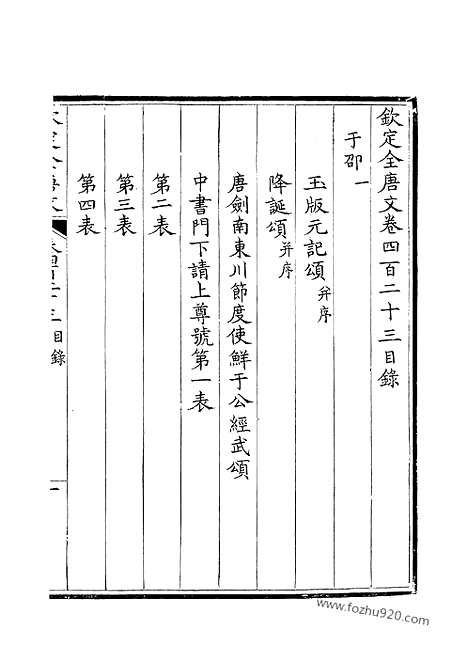 欽定全唐文卷四百二十三目錄
于邵一
玉版元記頌并序
降誕頌并序
唐劍南東川節度使鮮于公經武頌
中書門下請上尊號第一表
第二表
第三表
第四表
目錄
www.fozhu920.com